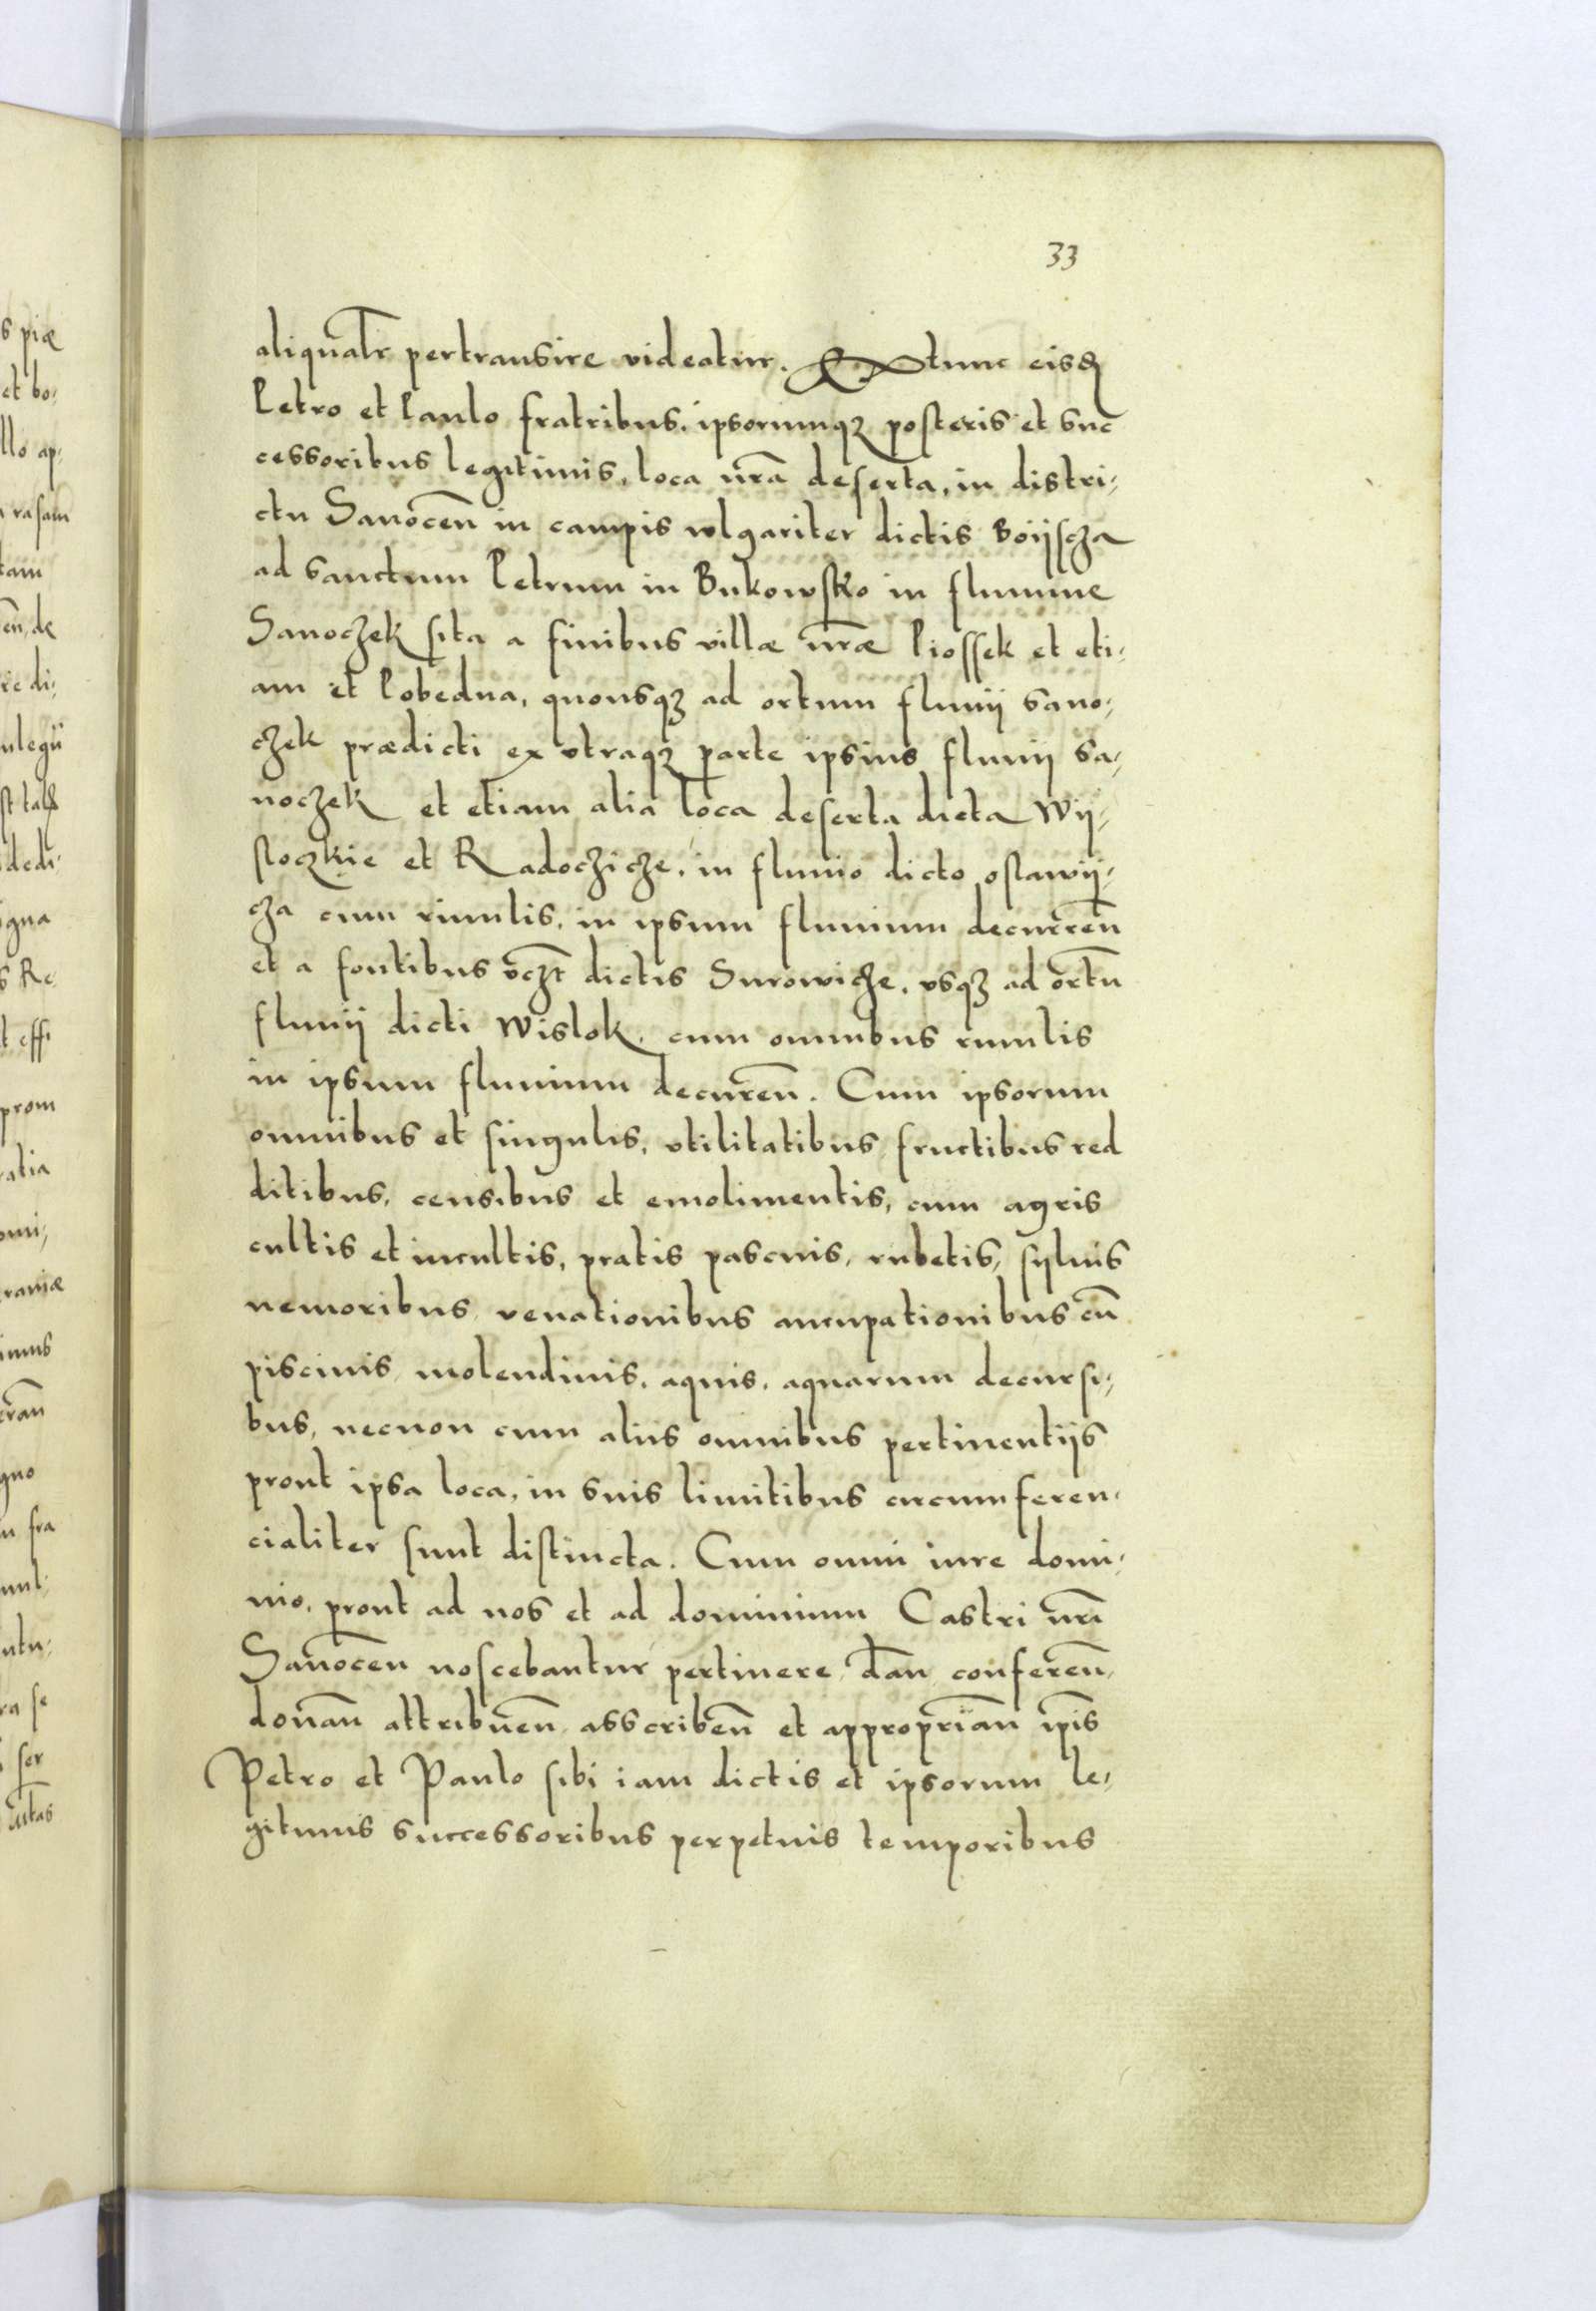 33
aliqualr̄ pertransire videatur. Ex tunc eisdē
Petro et Paulo fratribus, ipsorumqꝫ posteris et suc
cessoribus legitimis, loca nrā deserta, in distri-
ctu Sanocen̄ in campis vlgariter dictis Boijscza
ad sanctum Petrum in Bukowsko in flumine
Sanoczek sita a finibus villæ nr̄æ Piossek et eti-
am et Pobedna, quousqꝫ ad ortum fluuij Sano-
czek prædicti ex vtraqꝫ parte ipsius fluuij Sa-
noczek et etiam alia loca deserta dicta Wij-
stoczkie et Radoczicze, in fluuio dicto ostawij-
cza cum riuulis, in ipsum fluuium decurren̄
et a fontibus vczt̄ dictis Surowicze, vsqꝫ ad ortū
fluuij dicti Wislok, cum omnibus riuulis
in ipsum fluuium decuren̄. Cum ipsorum
omnibus et singulis, vtilitatibus fructibus red
ditibus, censibus et emolimentis, cum agris
cultis et incultis, pratis pascuis, rubetis, syluis
nemoribus venationibus aucupationibus cū
piscinis molendinis, aquis, aquarum decursi-
bus, necnon cum aliis omnibus pertinentijs
prout ipsa loca, in suis limitibus circumferen-
cialiter sunt distincta. Cum omni iure domi-
nio, prout ad nos et ad dominium Castri nrī
Sanocen̄ noscebantur pertinere, dan̄ conferen̄
donan̄ attribuen̄ asscriben̄ et approprian̄ ip̄is
Petro et Paulo sibi iam dictis et ipsorum le-
gitimis successoribus perpetuis temporibus